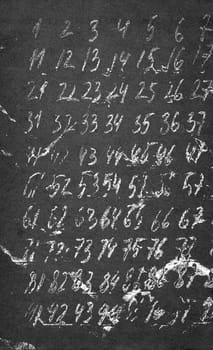 1 2 3 4 5 6 7
11 12 13 14 15 16 17
21 22 23 24 25 26 27
31 32 33 34 35 36 37
43 44 45 46 47
51 52 53 54 51 57
61 62 63 64 65 66 67
73 74 75 76 77
81 82 83 84 85 86 87
92 93 94